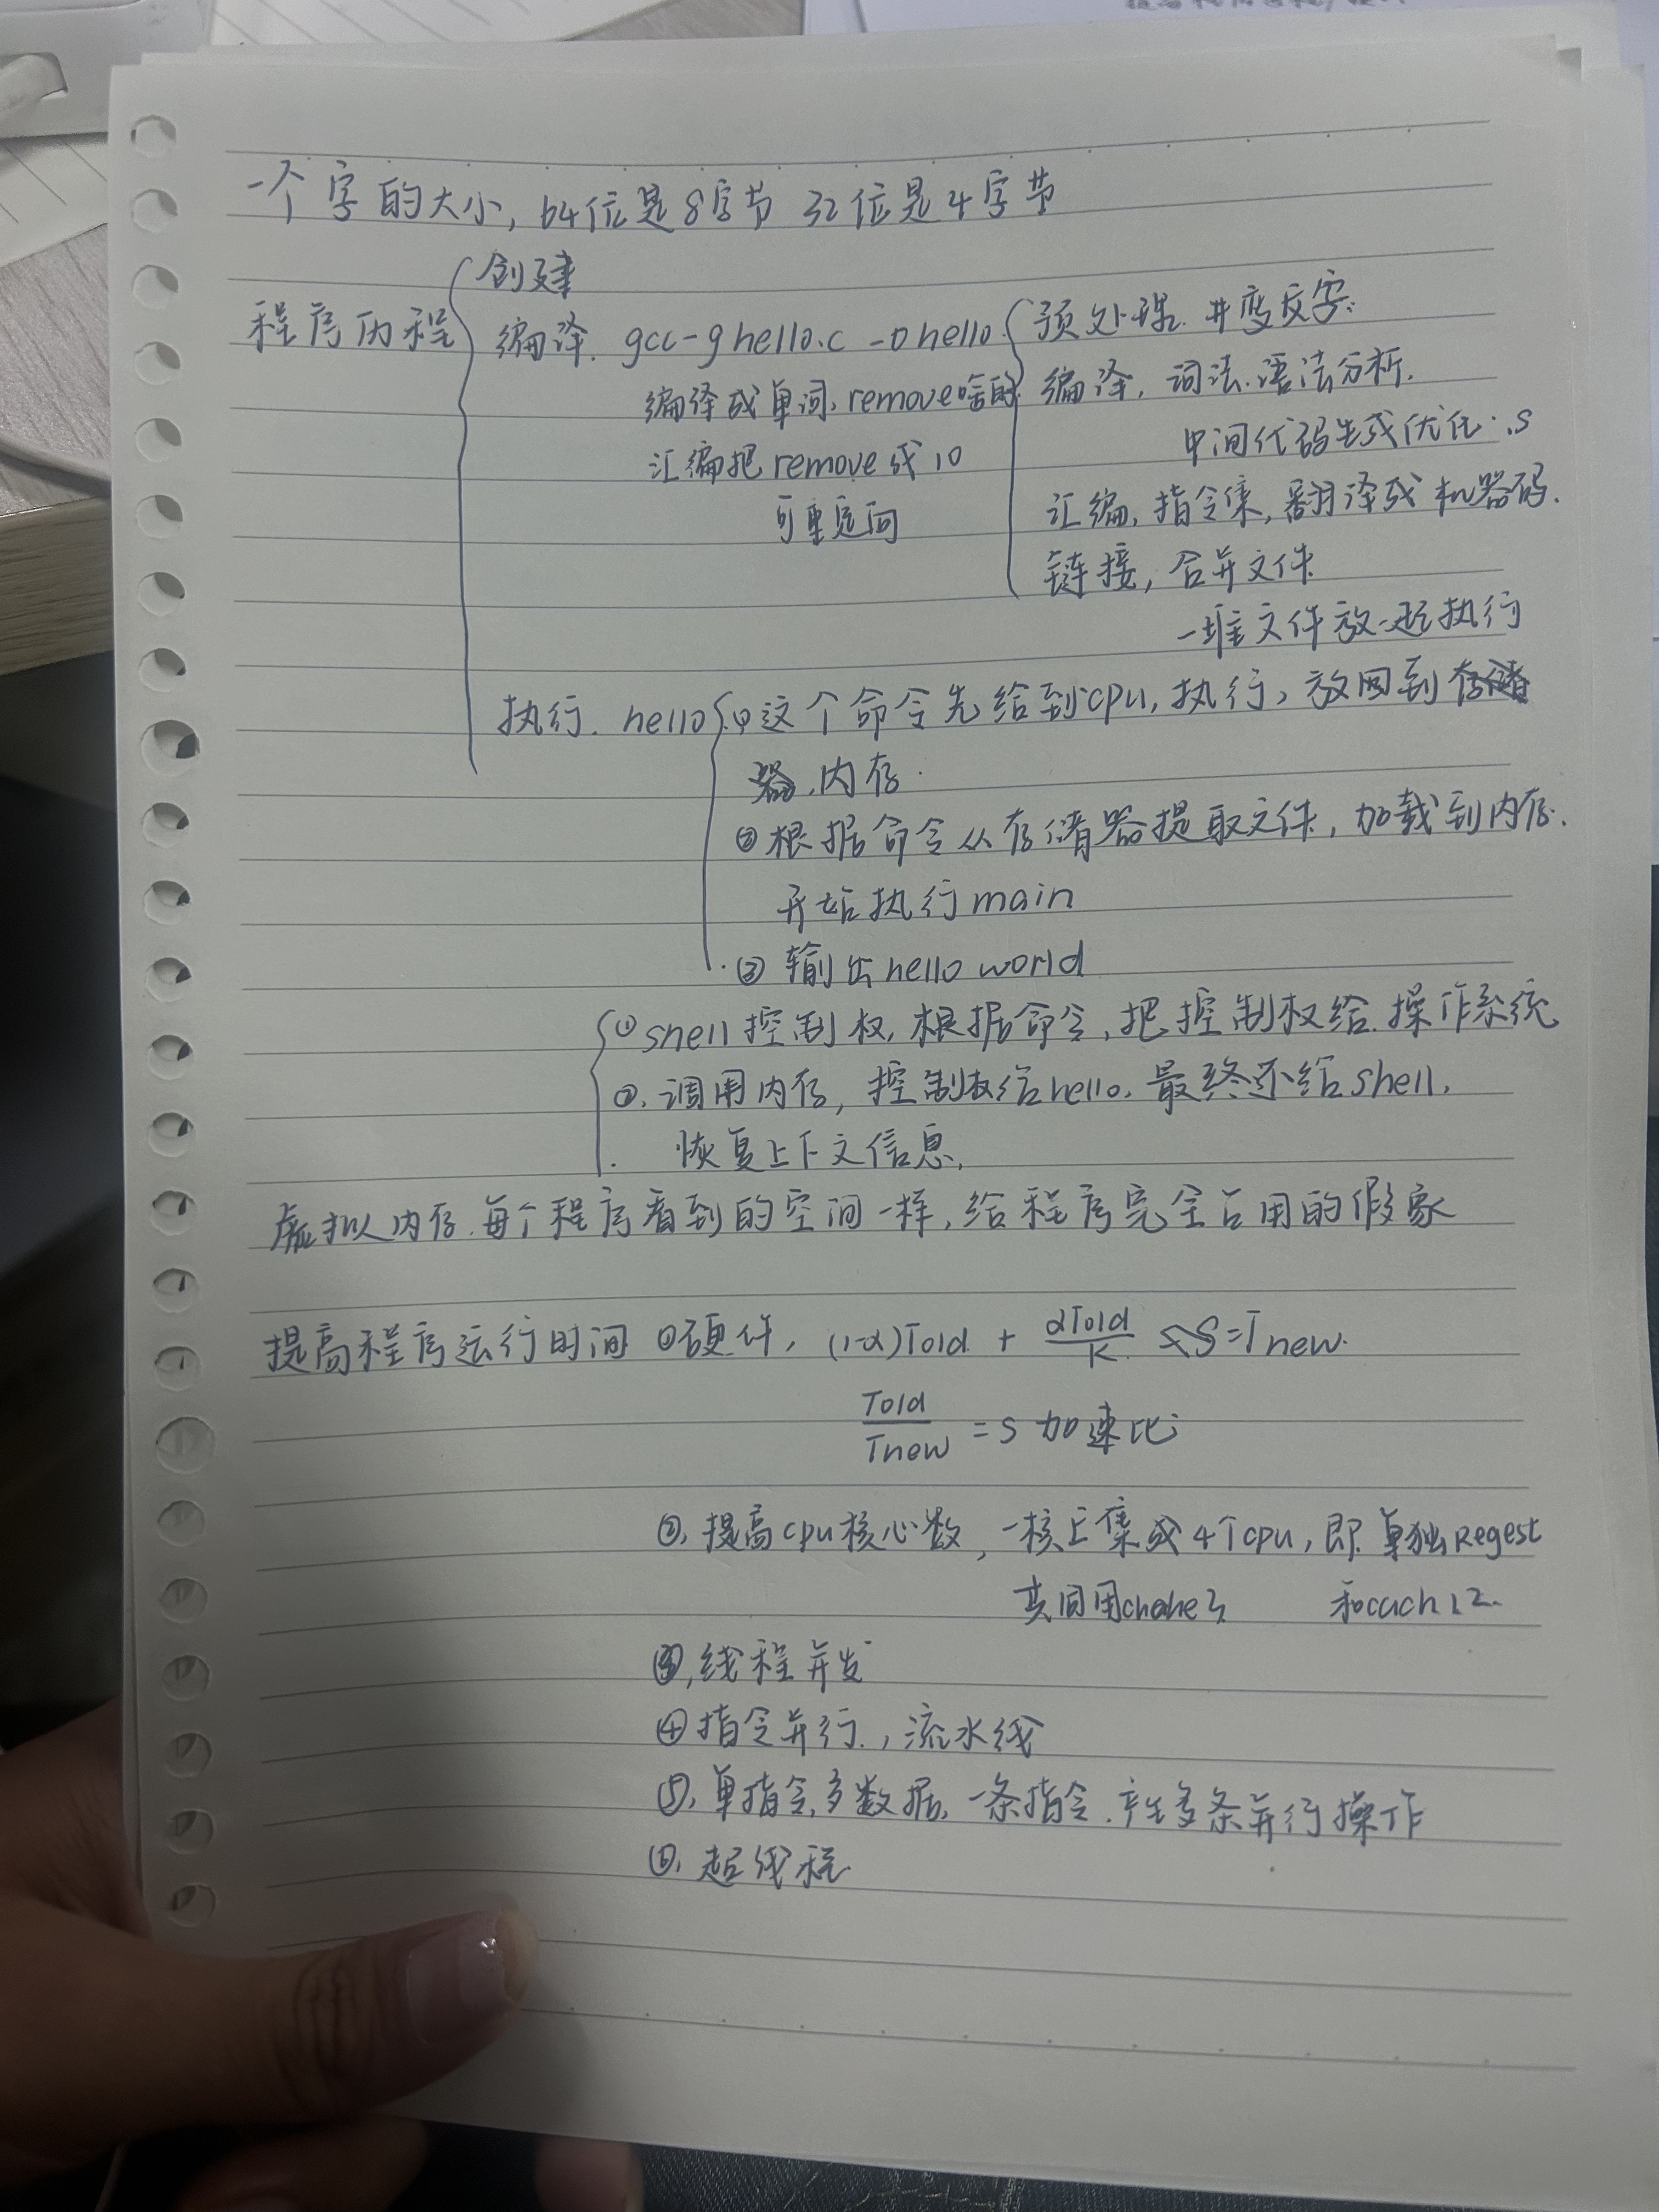 一个字的大小, 64位是8字节 32位是4字节
程序历程
创建
编译. gcc -g hello.c -o hello
编译成单词, remove啥的
汇编把 remove 成 10
可重定向
预处理. #变文字.
编译, 词法.语法分析.
中间代码生成优化. .s
汇编, 指令集, 翻译成 机器码.
链接, 合并文件
一堆文件放一起执行
执行. hello
①这个命令先给到cpu, 执行, 放回到
内存.
②根据命令从存储器提取文件, 加载到内存.
开始执行main
③ 输出hello world
①shell控制权, 根据命令, 把控制权给.操作系统
②. 调用内存, 控制权给hello. 最终还给shell.
恢复上下文信息.
虚拟内存.每个程序看到的空间一样, 给程序完全占用的假象
提高程序运行时间 ①硬件, (1-α)Told + αTold/K = Tnew.
Told/Tnew = S 加速比
②, 提高cpu核心数, 一核上集成4个cpu, 即.单独Regest
共同用 和cach 12.
③,线程并发
④指令并行., 流水线
⑤, 单指令,多数据, 一条指令.产生多条并行操作
⑥, 超线程